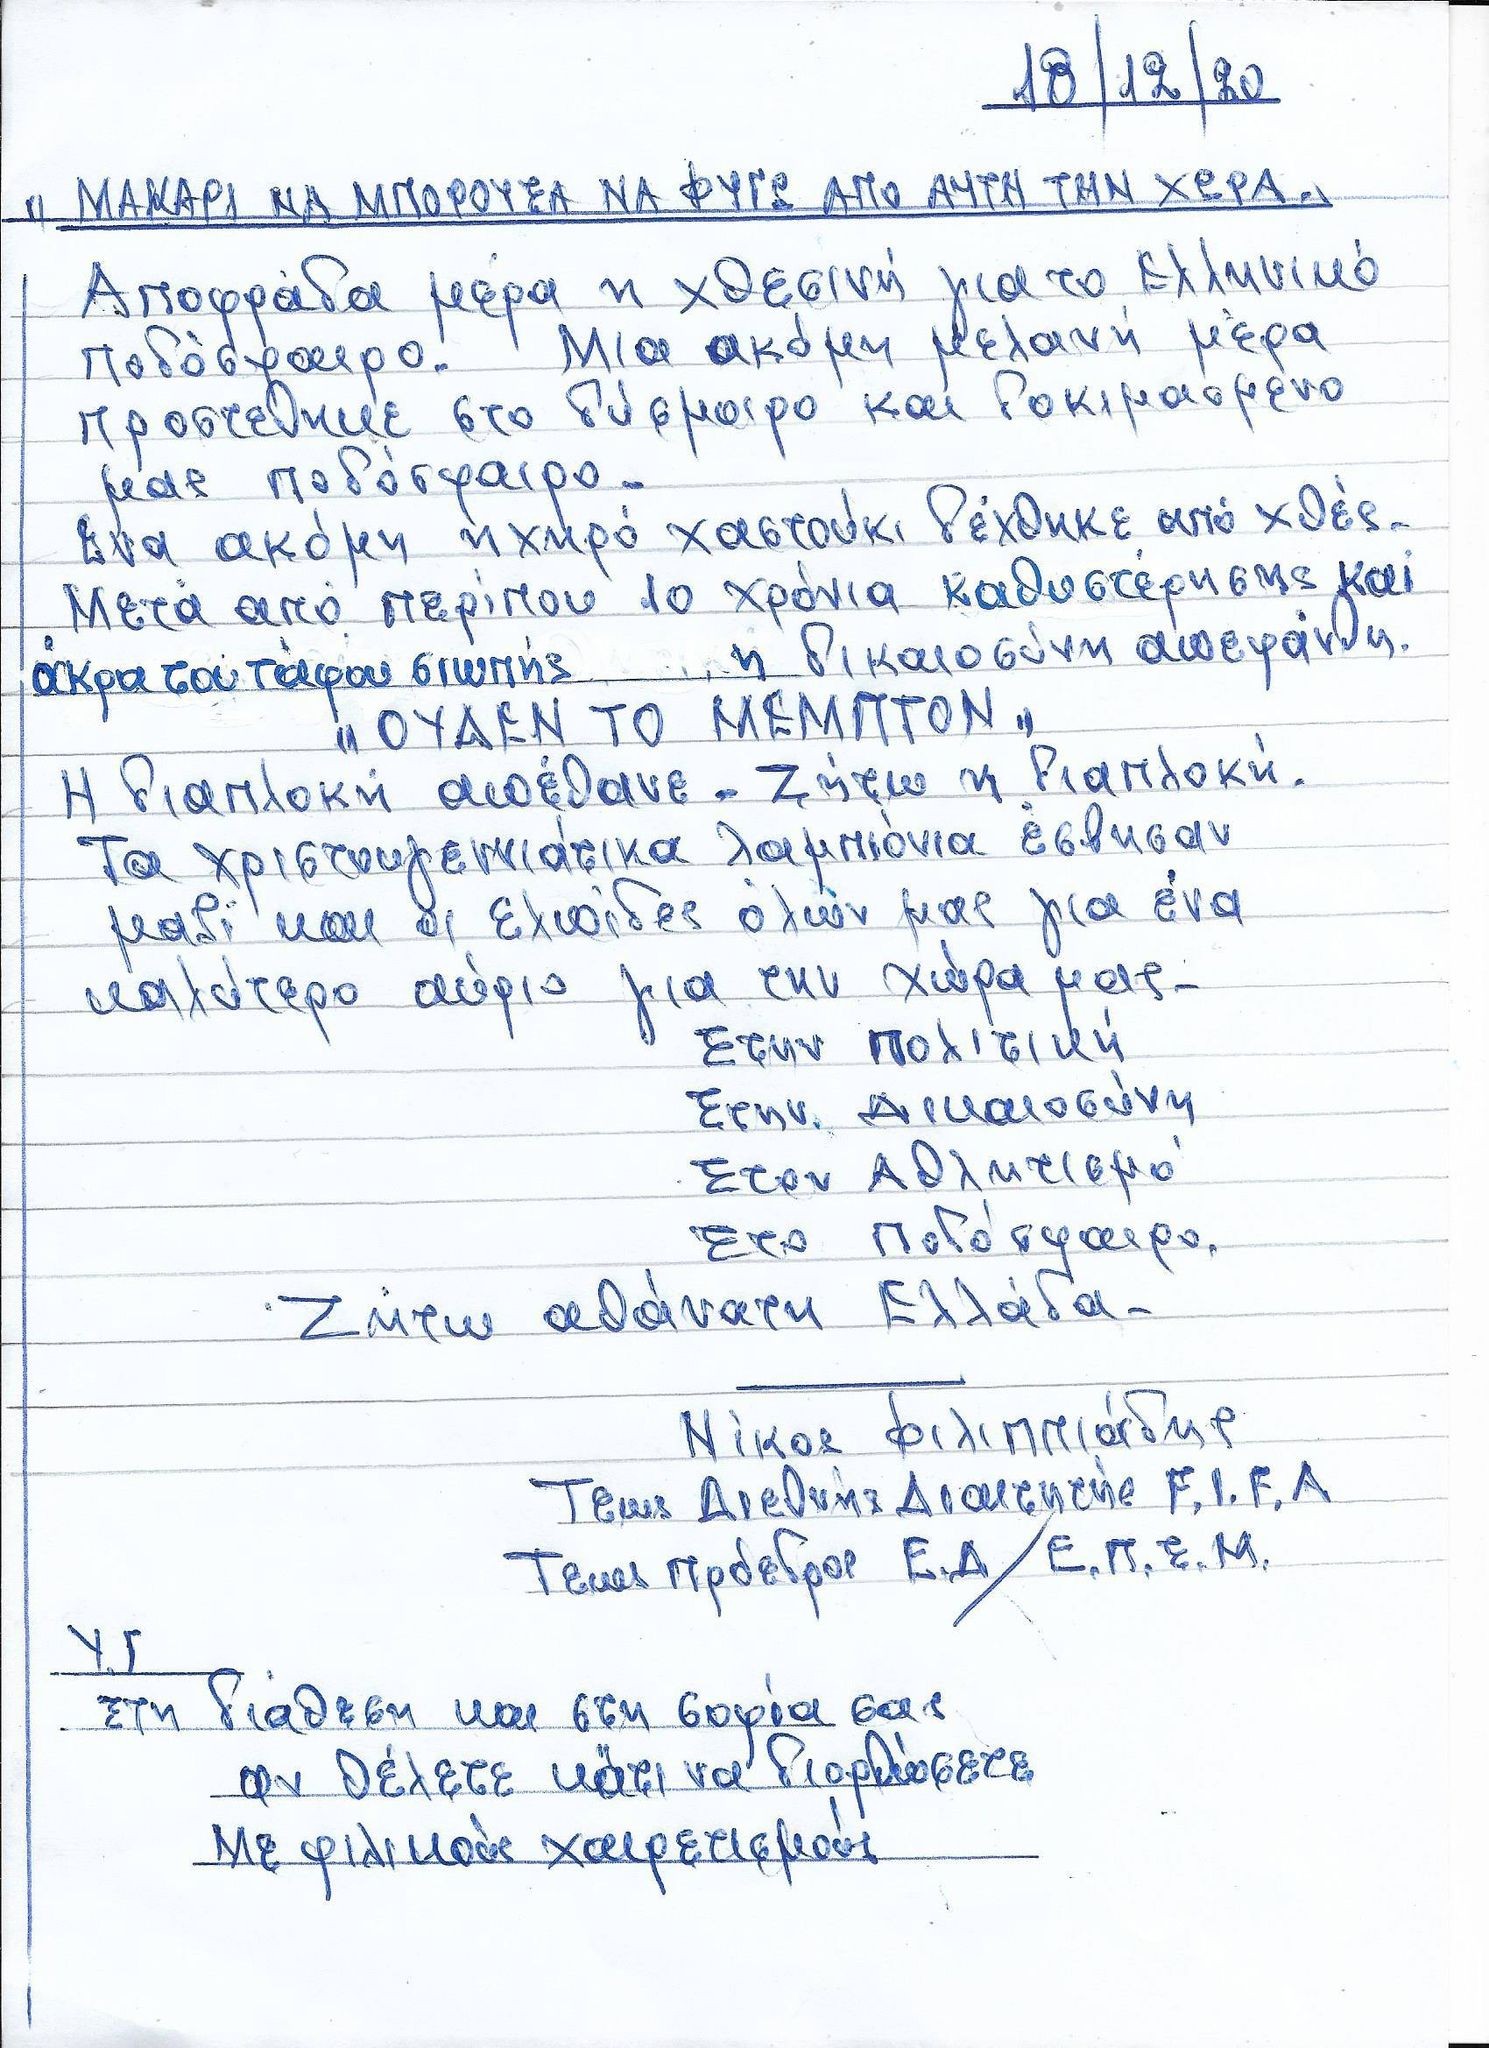 18/12/20
" ΜΑΚΑΡΙ ΝΑ ΜΠΟΡΟΥΣΑ ΝΑ ΦΥΓΩ ΑΠΟ ΑΥΤΗ ΤΗΝ ΧΩΡΑ „
Αποφράδα μέρα η χθεσινή για το Ελληνικό
ποδόσφαιρο. Μια ακόμη μελανή μέρα
προστέθηκε στο δύσμοιρο και δοκιμασμένο
μας ποδόσφαιρο -
Ένα ακόμη ηχηρό χαστούκι δέχθηκε από χθές -
Μετά από περίπου 10 χρόνια καθυστέρησης και
άκρα του τάφου σιωπής ..... η δικαιοσύνη απεφάνθη.
„ ΟΥΔΕΝ ΤΟ ΜΕΜΠΤΟΝ „
Η διαπλοκή απέθανε - Ζήτω η διαπλοκή.
Τα χριστουγεννιάτικα λαμπιόνια έσβησαν
μαζί και οι ελπίδες όλων μας για ένα
καλύτερο αύριο για την χώρα μας -
Στην πολιτική
Στην Δικαιοσύνη
Στον Αθλητισμό
Στο Ποδόσφαιρο.
Ζήτω αθάνατη Ελλάδα -
Νίκος Φιλιππιάδης
Τεως Διεθνής Διαιτητής F.I.F.A
Τεως πρόεδρος Ε.Δ / Ε.Π.Σ.Μ.
Υ.Γ
Στη διάθεση και στη σοφία σας
αν θέλετε κάτι να διορθώσετε
Με φιλικούς χαιρετισμούς